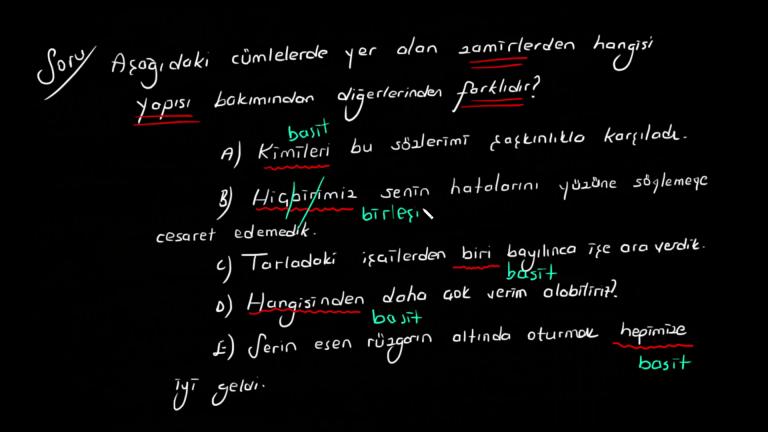 Soru Aşağıdaki cümlelerde yer alan zamirlerden hangisi
yapısı bakımından diğerlerinden farklıdır?
basit
A) Kimileri bu sözlerimi şaşkınlıkla karşıladı.
B) Hiçbirimiz senin hatalarını yüzüne söylemeye
birleşi
cesaret edemedik.
C) Tarladaki işçilerden biri bayılınca işe ara verdik.
basit
D) Hangisinden daha çok verim alabiliriz?
basit
E) Serin esen rüzgarın altında oturmak hepimize
basit
iyi geldi.